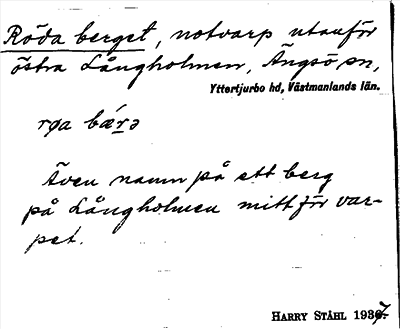 Röda berget, notvarp utanför
östra Långholmen, Ängsö sn,
Yttertjurbo hd, Västmanlands län.
røa bǽrə
Även namn på ett berg
på Långholmen mitt för var-
pet.
HARRY STÅHL 1937.